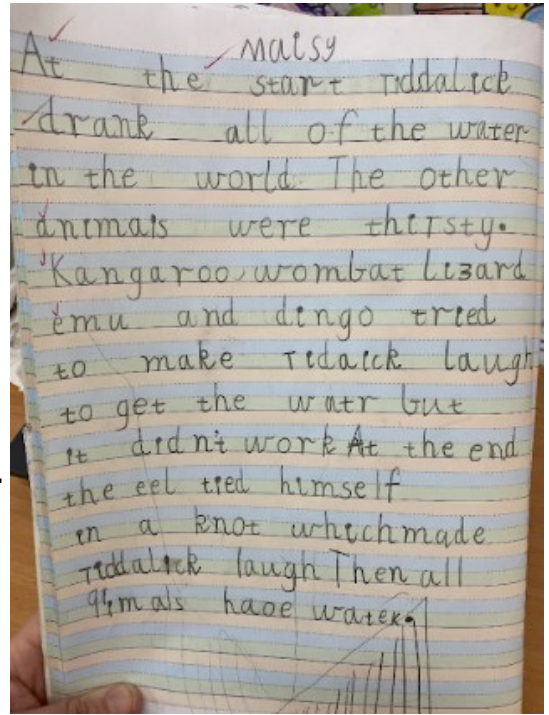 Maisy
At the start riddalick
drank all of the water
in the world. The other
animals were thirsty.
Kangaroo, wombat lizard
emu and dingo tried
to make ridaick laugh
to get the watr but
it didn't work At the end
the eel tied himself
in a knot which made
riddalick laugh Then all
haoe water.